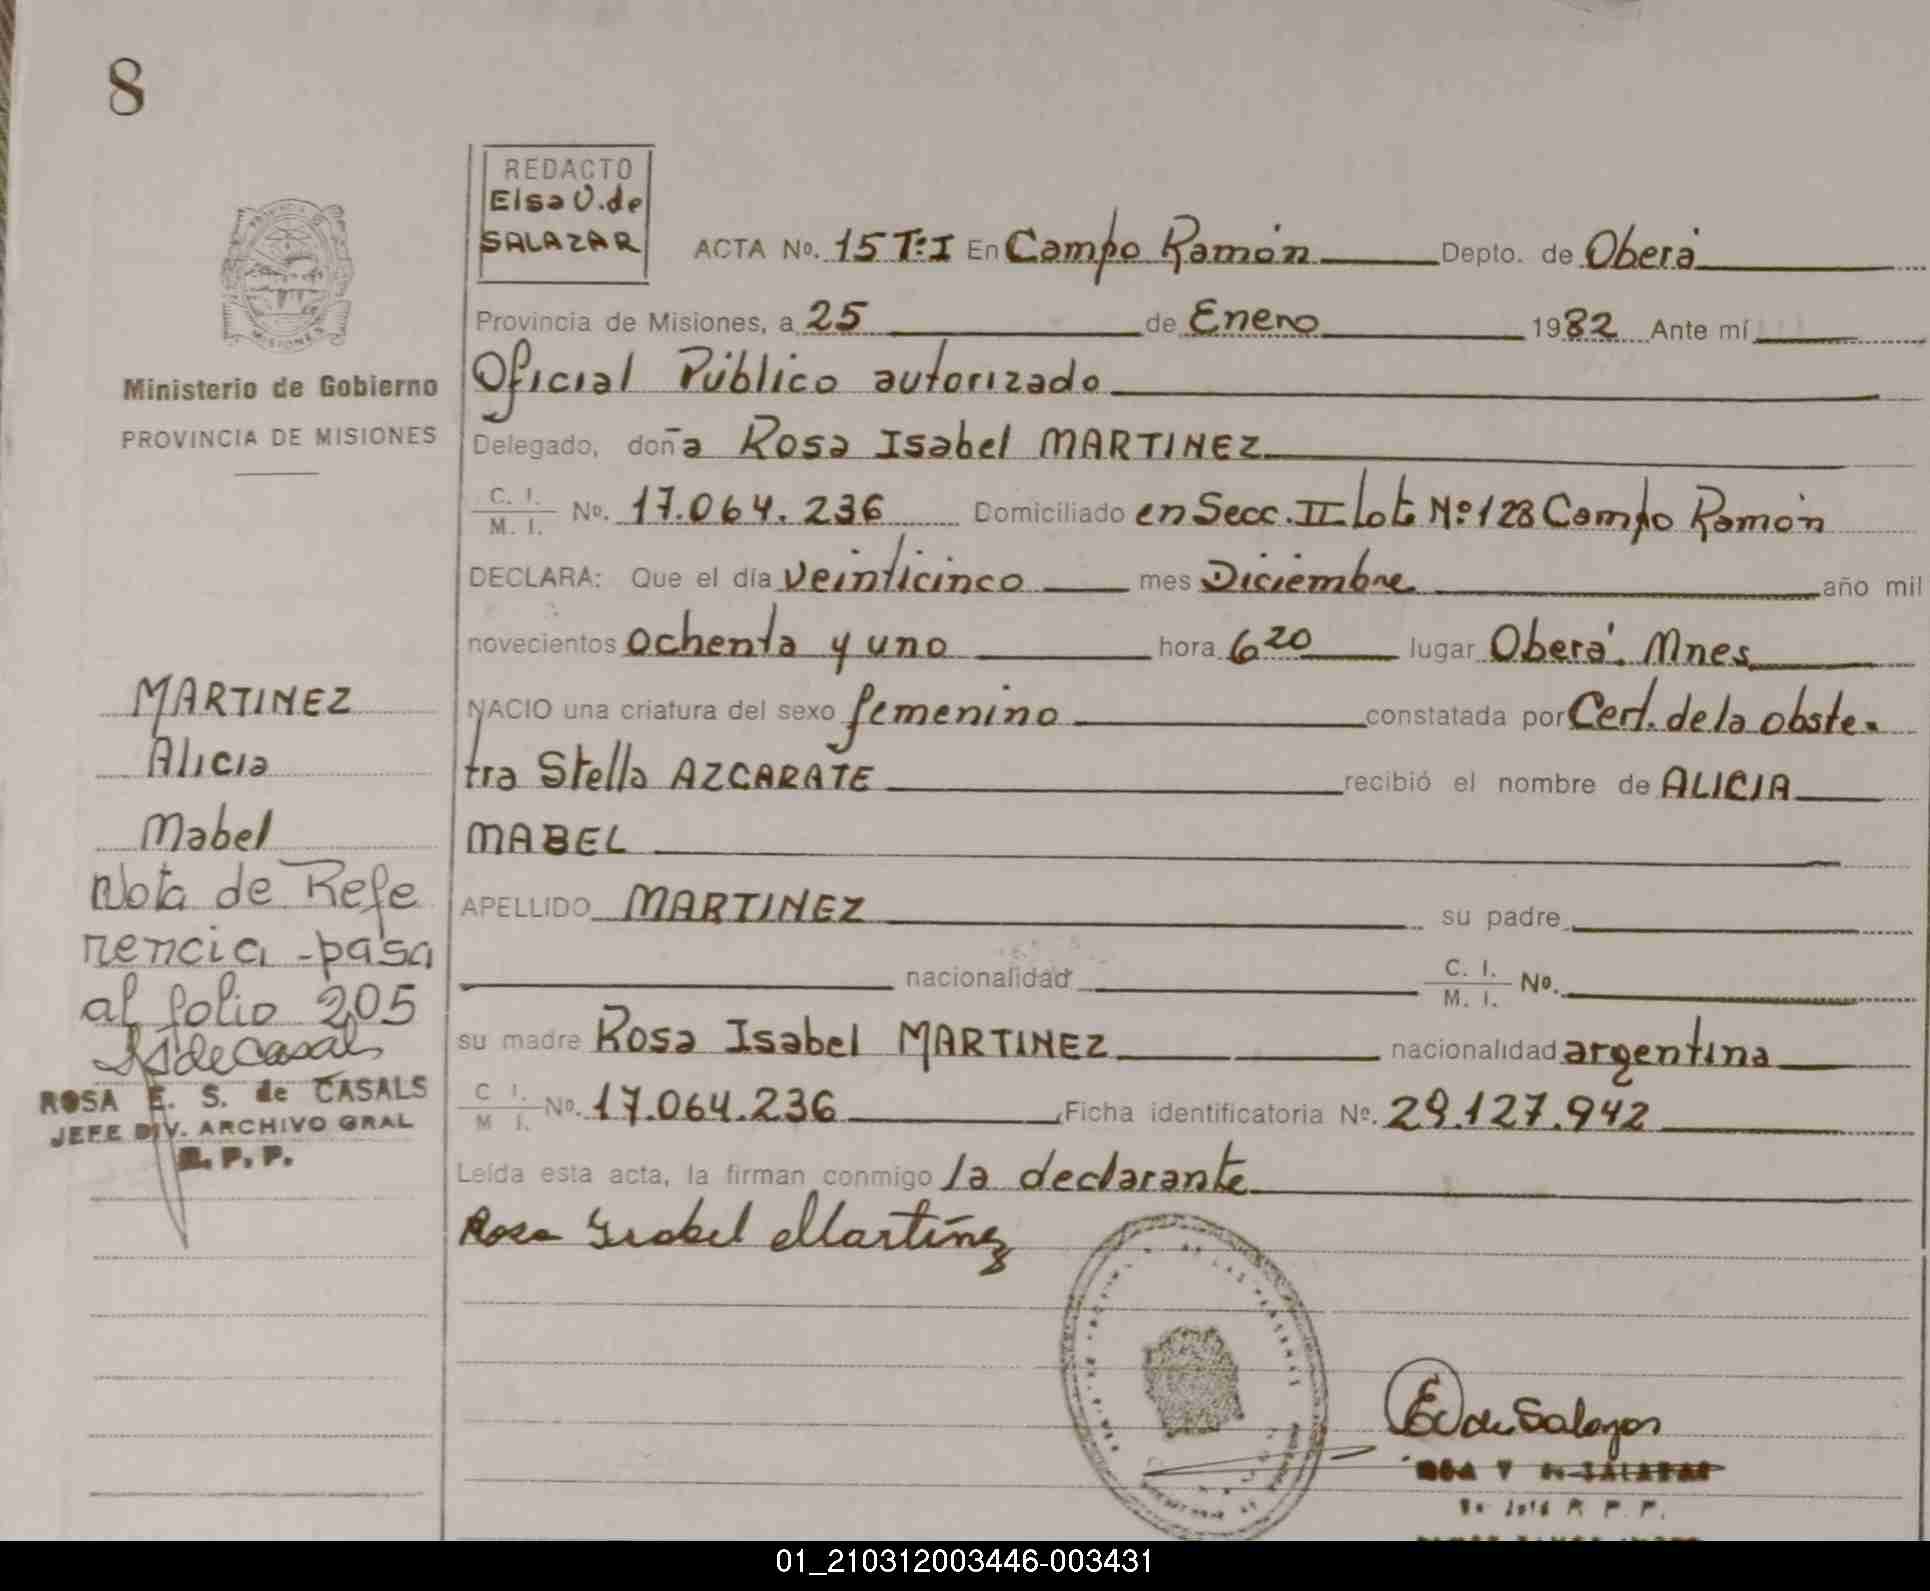 8
REDACTO
Elsa V. de
SALAZAR
ACTA No. 15 Tº I En Campo Ramón Depto. de Oberá
Provincia de Misiones, a 25 de Enero 1982 Ante mí
Oficial Público autorizado
Delegado, doña Rosa Isabel MARTINEZ
C. I. / M. I. No. 17.064.236 Domiciliado en Secc. II lote Nº 128 Campo Ramón
DECLARA: Que el día veinticinco mes Diciembre año mil
novecientos ochenta y uno hora 6 20 lugar Oberá. Mnes
NACIO una criatura del sexo femenino constatada por Cert. de la obste-
tra Stella AZCARATE recibió el nombre de ALICIA
MABEL
APELLIDO MARTINEZ su padre
nacionalidad C. I. / M. I. No.
su madre Rosa Isabel MARTINEZ nacionalidad argentina
C I. / M I. No. 17.064.236 Ficha identificatoria No. 29.127.942
Leída esta acta, la firman conmigo la declarante
Rosa Isabel Martínez
E V de Salazar
PROVINCIA DE
MISIONES
Ministerio de Gobierno
PROVINCIA DE MISIONES
MARTINEZ
Alicia
Mabel
Nota de Refe
rencia - pasa
al folio 205
S de Casals
ROSA E. S. de CASALS
JEFE DIV. ARCHIVO GRAL
R. P. P.
SALAZAR
R P. P.
01_210312003446-003431